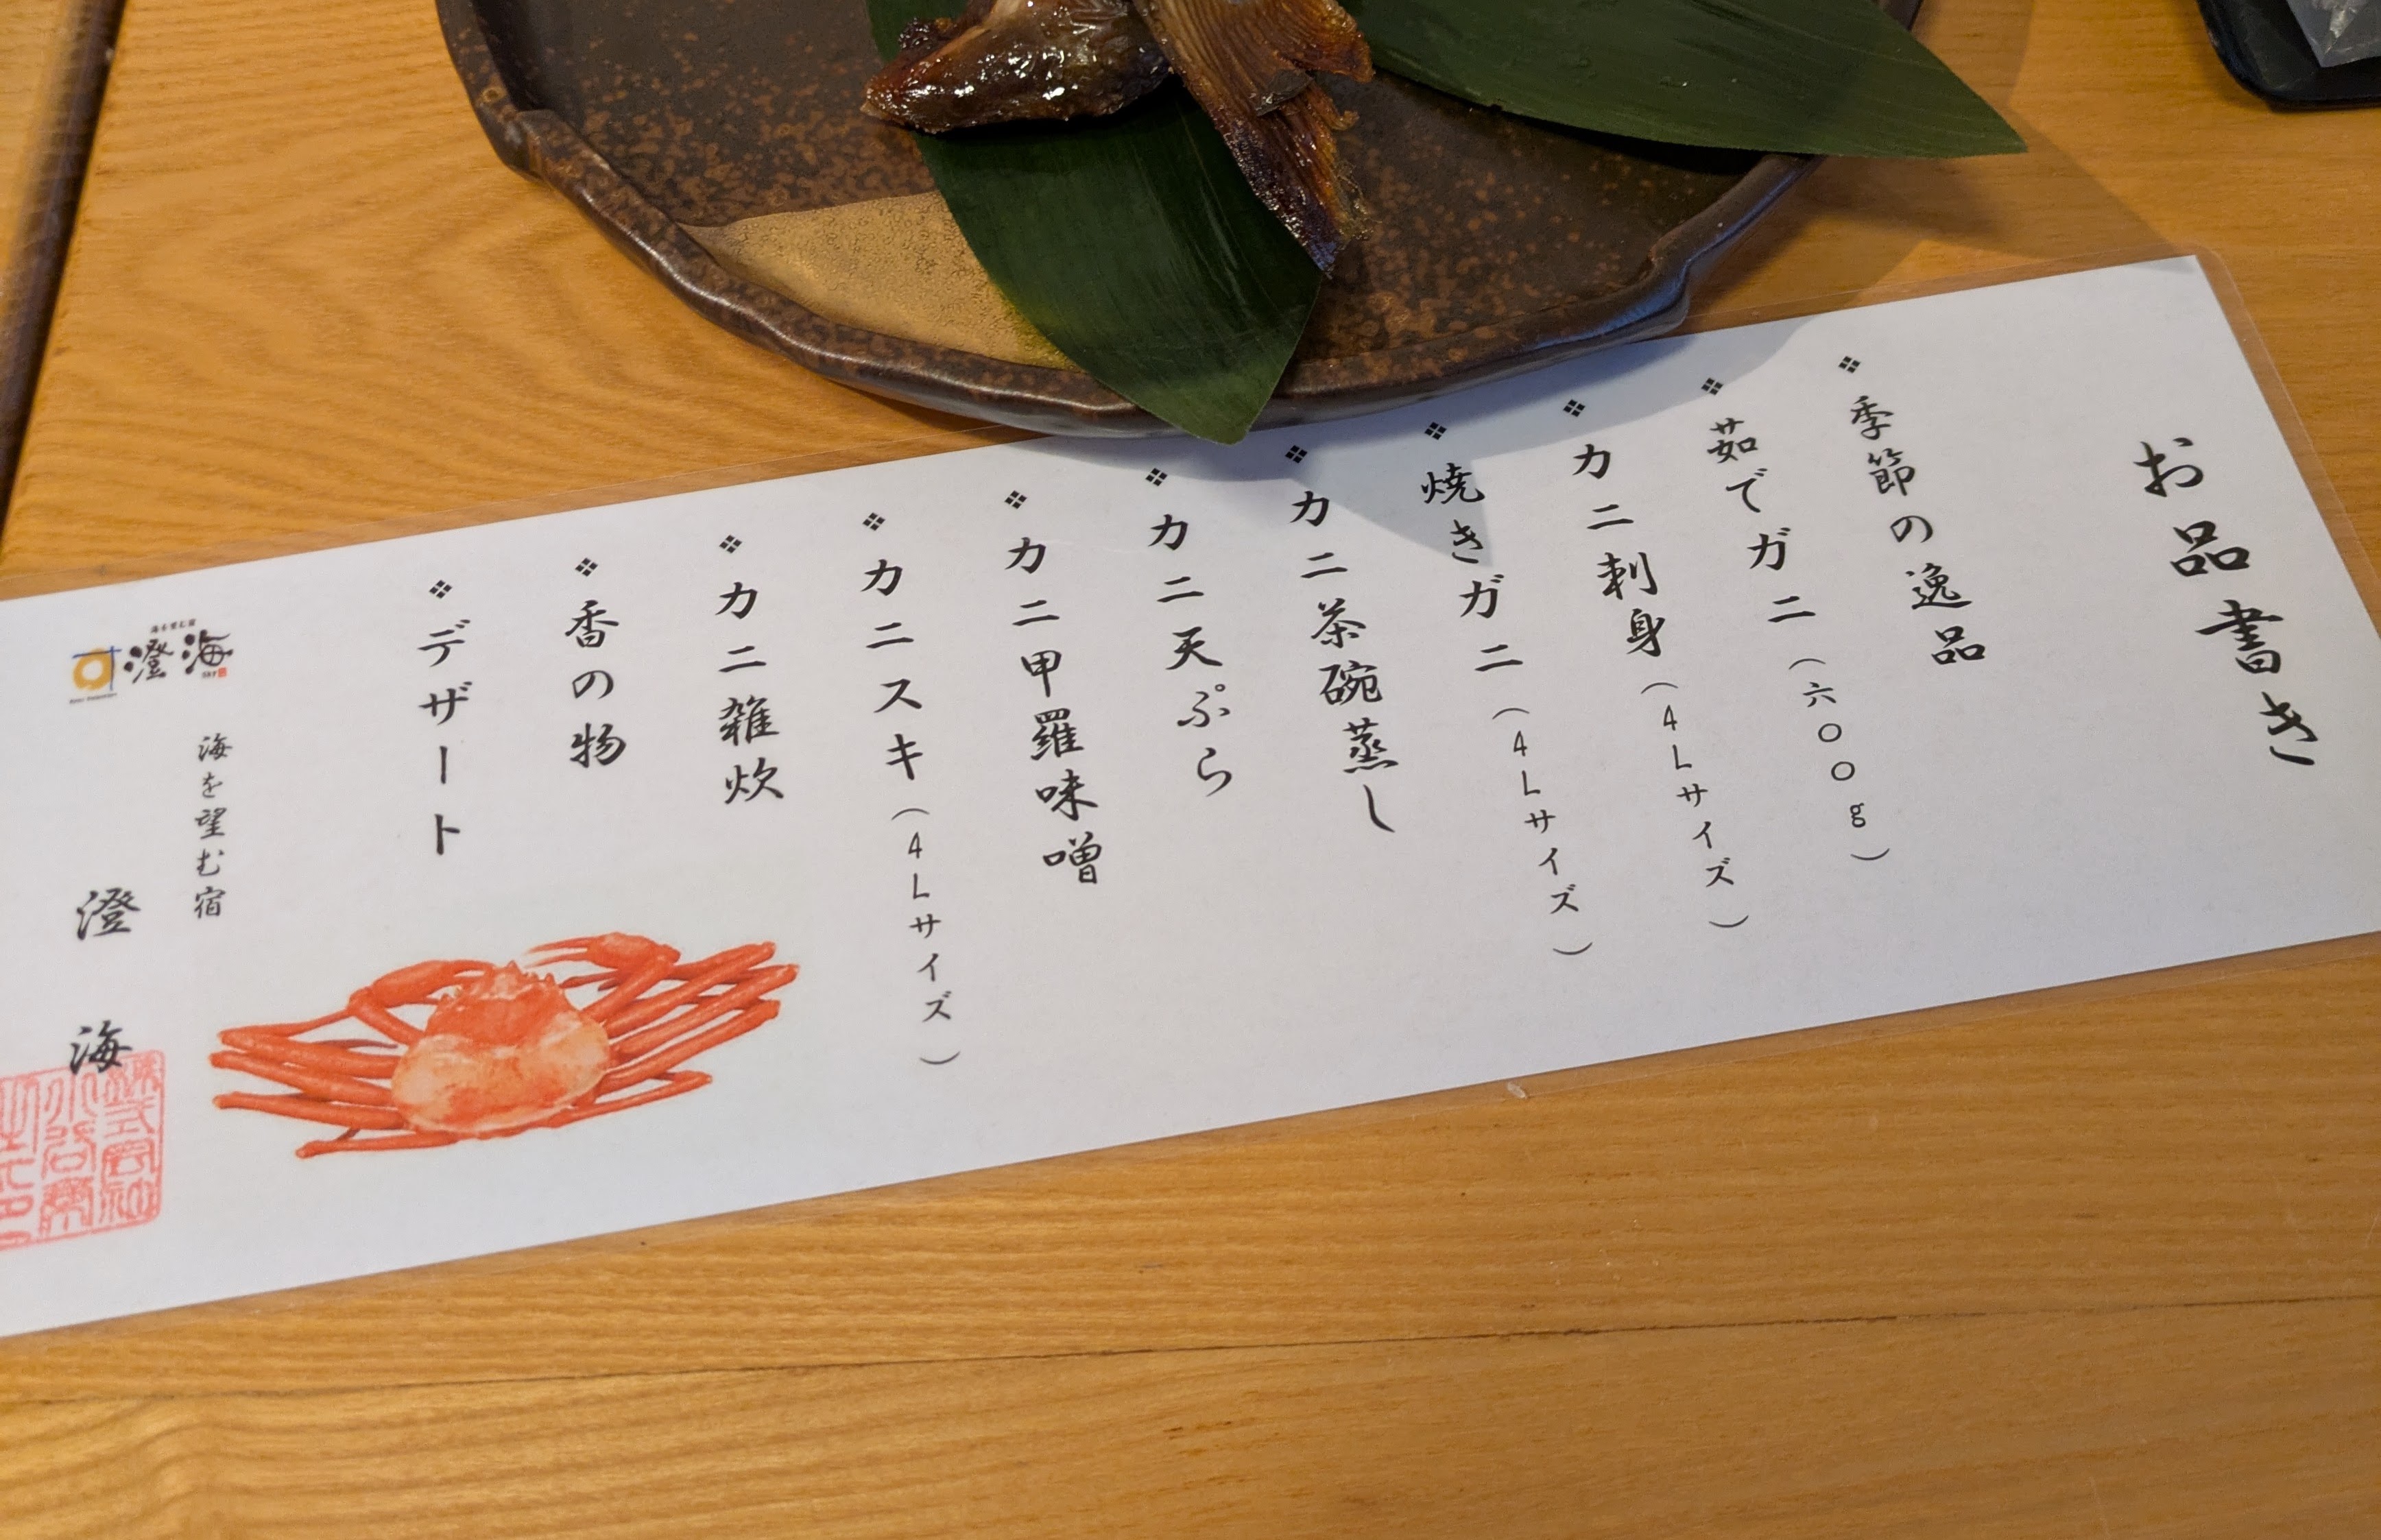 お品書き
❖季節の逸品
❖茹でガニ（六〇〇g）
❖カニ刺身（4Lサイズ）
❖焼きガニ（4Lサイズ）
❖カニ茶碗蒸し
❖カニ天ぷら
❖カニ甲羅味噌
❖カニスキ（4Lサイズ）
❖カニ雑炊
❖香の物
❖デザート
海を望む宿
澄海
澄海
株式会社